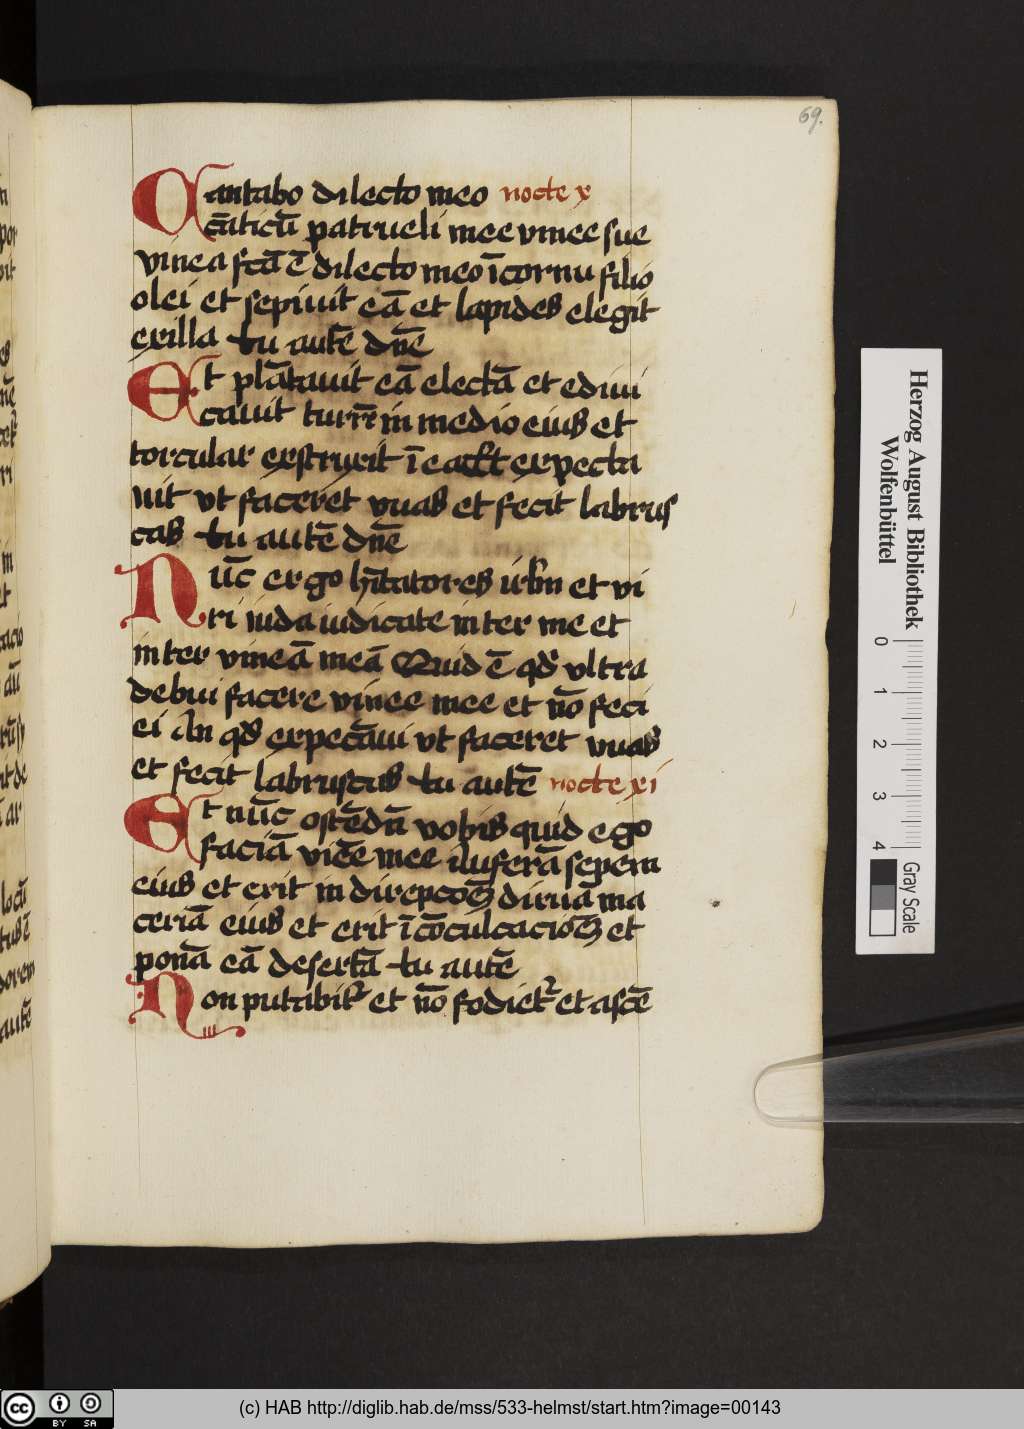 69.
Cantabo dilecto meo nocte x
cāticū patrueli mee vinee sue
vinea fctā ē dilecto meo ī cornu filio
olei et sepiuit eā et lapides elegit
exilla tu autē dn̄e
Et plātauit eā electā et edivi
cauit turrē in medio eius et
torcular exstruxit ī ea et expecta
uit vt faceret vuas et fecit labrus
cas tu autē dn̄e
Nūc ergo hītatores irl̄m et vi
ri iuda iudicate inter me et
inter vineā meā Quid ē qd̄ vltra
debui facere vinee mee et nō feci
ei an qd̄ expectāui vt faceret vuas
et fecit labruscas tu autē nocte xi
Et nūc ostēdā vobis quid ego
faciā vinēe mee auferā sepem
eius et erit in direpcōꝫ diruā ma
ceriā eius et erit ī cōculcacioꝫ et
ponā eā desertā tu autē
Non putabit᷑ et nō fodiet᷑ et ascē
Herzog August Bibliothek
Wolfenbüttel
0
1
2
3
4
Gray Scale
cc BY SA
(c) HAB http://diglib.hab.de/mss/533-helmst/start.htm?image=00143